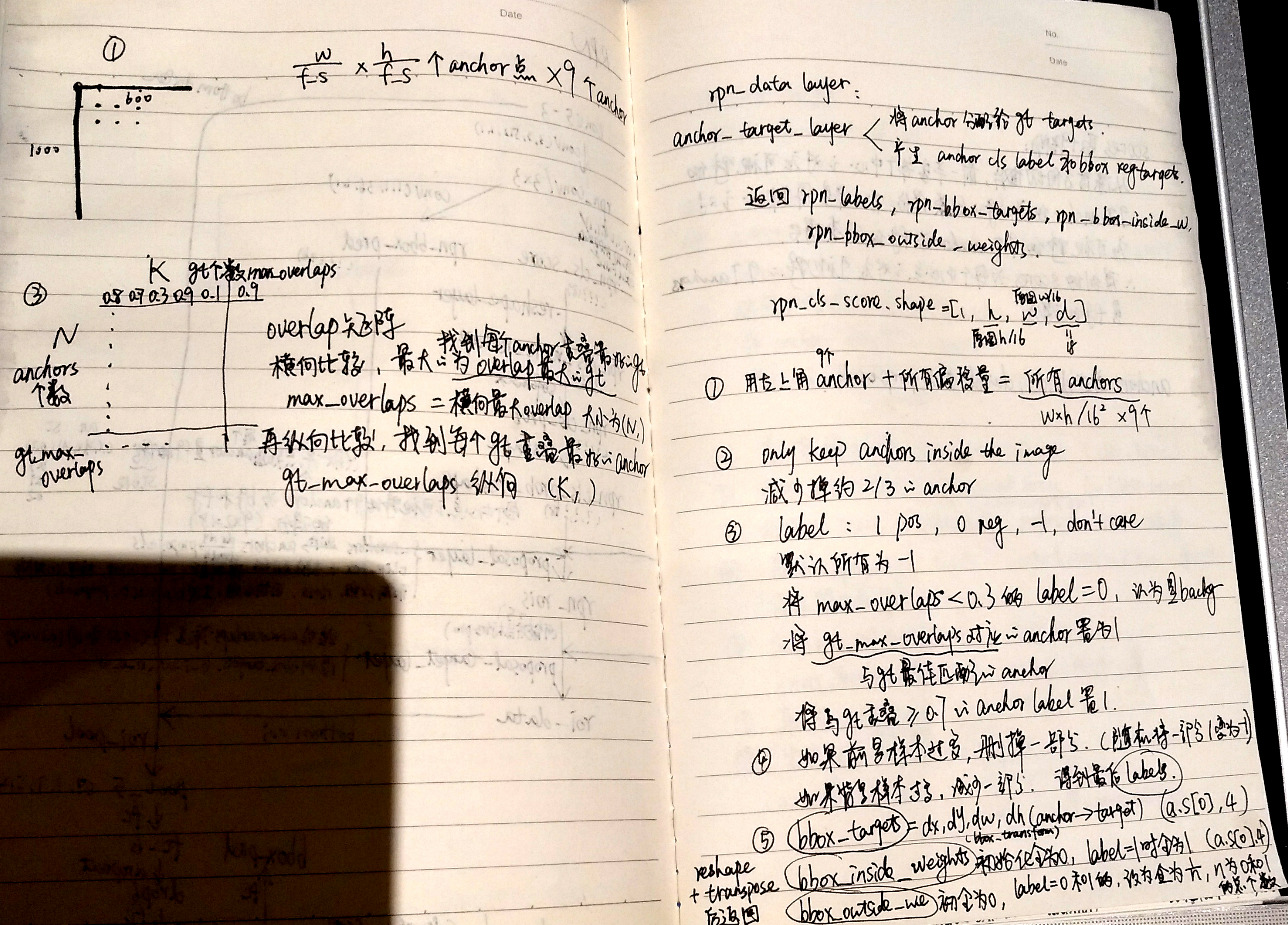 Date
①
w/f_s × h/f_s 个 anchor 点 × 9 个 anchor
600
1000
③
K gt个数 max_overlaps
0.8 0.7 0.3 0.9 0.1 0.9
N
anchors
个数
gt_max_
overlaps
overlap矩阵
找到每个anchor重叠最好的gt
横向比较，最大的为overlap最大的gt
max_overlaps = 横向最大overlap 大小为(N,)
再纵向比较，找到每个gt重叠最好的anchor
gt_max_overlaps 纵向 (K,)
No.
Date
rpn_data layer:
anchor_target_layer
将anchor分配给gt targets.
产生 anchor cls label 和bbox reg targets.
返回 rpn_labels, rpn_bbox_targets, rpn_bbox_inside_w,
rpn_bbox_outside_weights.
rpn_cls_score.shape=[1, h, w, d]
原图w/16
原图h/16
9个
① 用左上角 anchor + 所有偏移量 = 所有 anchors
w×h/16² ×9个
② only keep anchors inside the image
减少掉约 2/3 的 anchor
③ label : 1 pos, 0 neg, -1, don't care
默认所有为 -1
将 max_overlaps < 0.3 的 label=0, 认为是backg
将 gt_max_overlaps 对应的anchor 置为1
与gt最佳匹配的anchor
将与gt重叠 ≥ 0.7 的 anchor label 置1.
④ 如果前景样本过多, 删掉一部分. (随机将一部分1变为-1)
如果背景样本过多, 减少一部分. 得到最后 labels.
⑤ bbox_targets = dx, dy, dw, dh (anchor->target) (a.s[0], 4)
(bbox_transform)
bbox_inside_weights 初始化全为0, label=1时全为1 (a.s[0],4)
bbox_outside_we 初全为0, label=0和1的, 设为全为 1/n, n为0和1
的总个数
reshape
+ transpose
后返回